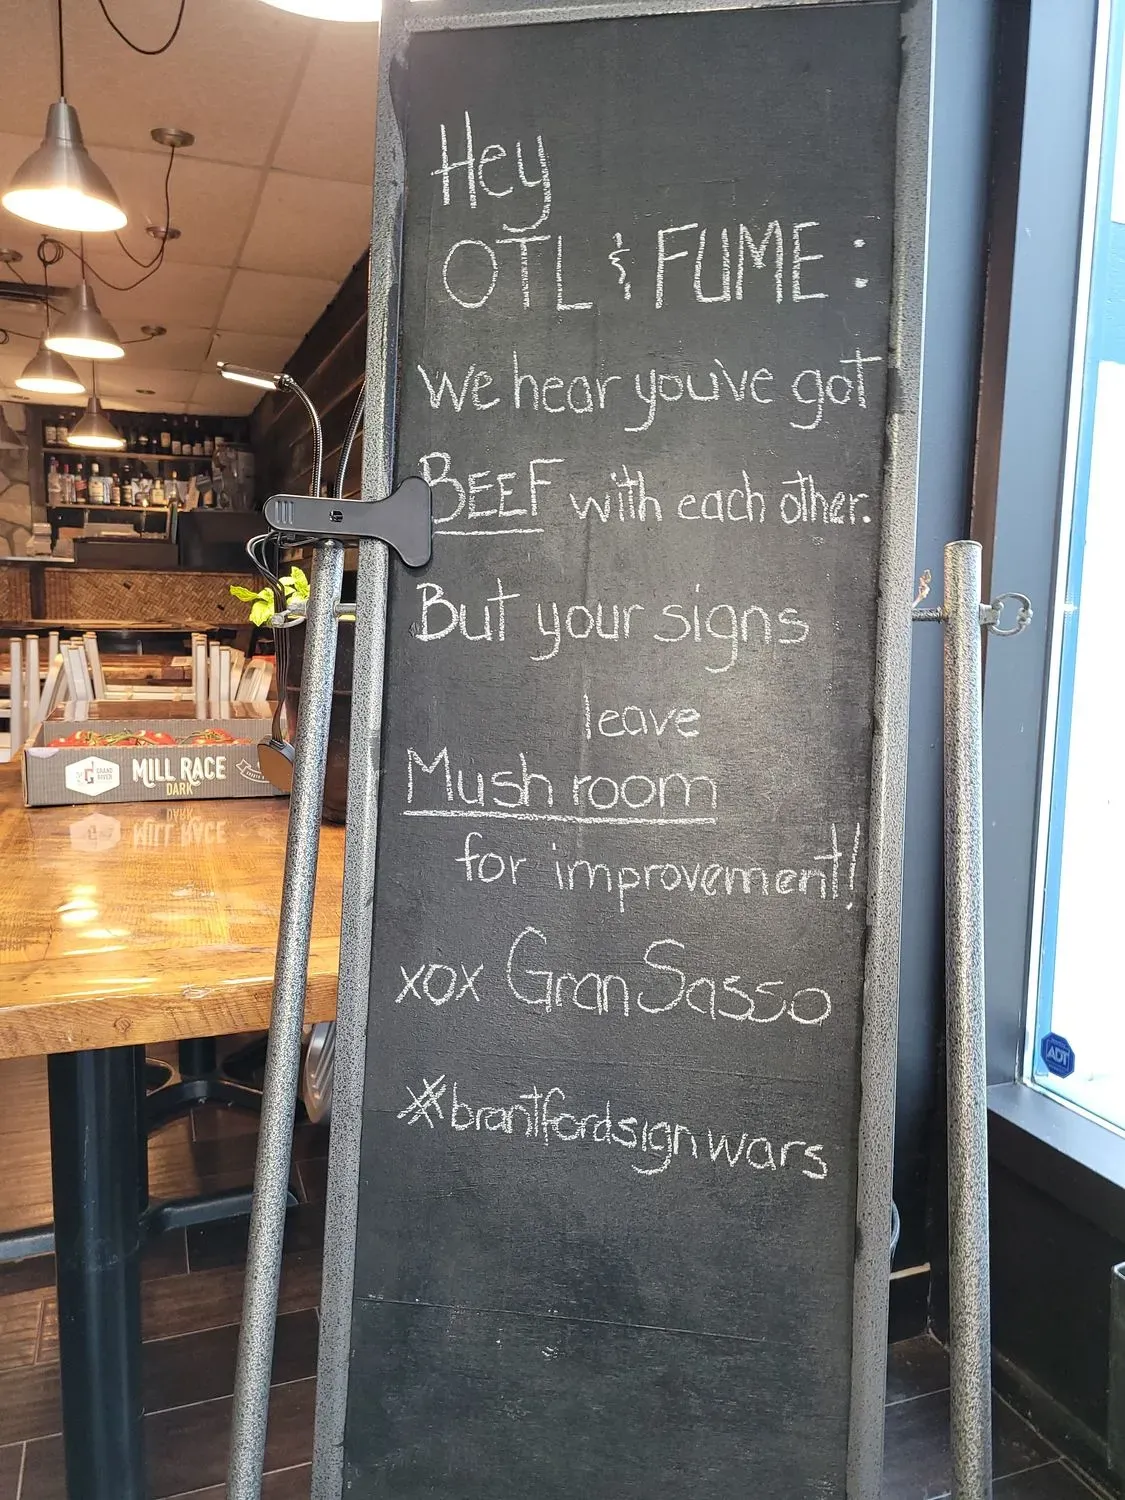 Hey
OTL & FUME:
We hear you've got
BEEF with each other.
But your signs
leave
Mushroom
for improvement!
xox Gran Sasso
#brantfordsignwars
GRAND RIVER
MILL RACE
DARK
ADT